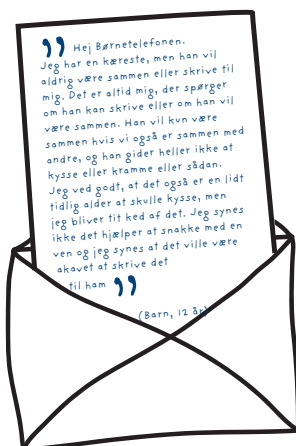 ” Hej Børnetelefonen.
Jeg har en kæreste, men han vil
aldrig være sammen eller skrive til
mig. Det er altid mig, der spørger
om han kan skrive eller om han vil
være sammen. Han vil kun være
sammen hvis vi også er sammen med
andre, og han gider heller ikke at
kysse eller kramme eller sådan.
Jeg ved godt, at det også er en lidt
tidlig alder at skulle kysse, men
jeg bliver tit ked af det. Jeg synes
ikke det hjælper at snakke med en
ven og jeg synes at det ville være
akavet at skrive det
til ham ”
(Barn, 12 år)